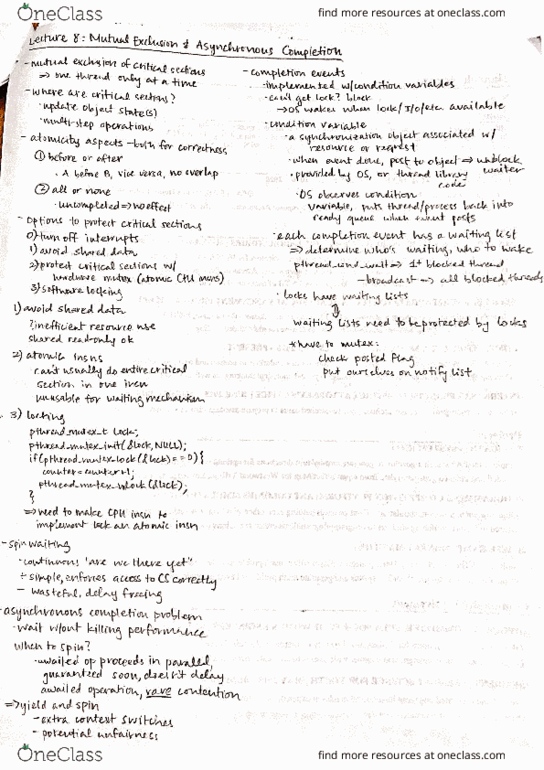 OneClass
find more resources at oneclass.com
Lecture 8: Mutual Exclusion & Asynchronous Completion
- mutual exclusion of critical sections
⇒ one thread only at a time
- where are critical sections?
· update object state(s)
· multi-step operations
- atomicity aspects - both for correctness
① before or after
· A before B, vice versa, no overlap
② all or none
· uncompleted ⇒ no effect
- options to protect critical sections
0) turn off interrupts
1) avoid shared data
2) protect critical sections w/
hardware mutex (atomic CPU insns)
3) software locking
1) avoid shared data
? inefficient resource use
shared read-only ok
2) atomic insns
· can't usually do entire critical
section in one insn
· unusable for waiting mechanism
3) locking
pthread_mutex_t lock;
pthread_mutex_init(&lock, NULL);
if(pthread_mutex_lock(&lock) == 0) {
counter = counter + 1;
pthread_mutex_unlock(&lock);
}
⇒ need to make CPU insn to
implement lock an atomic insn
- spin waiting
· continuous "are we there yet"
+ simple, enforces access to CS correctly
- wasteful, delay freeing
- asynchronous completion problem
· wait w/out killing performance
when to spin?
· awaited op proceeds in parallel,
guaranteed soon, doesn't delay
awaited operation, rare contention
⇒ yield and spin
- extra context switches
- potential unfairness
- completion events
· implemented w/condition variables
· can't get lock? block
→ OS wakes when lock/I/O/etc available
· condition variable
· a synchronization object associated w/
resource or request
· when event done, post to object ⇒ unblock
waiter
· provided by OS, or thread library
code
· OS observes condition
variable, puts thread/process back into
ready queue when event posts
· each completion event has a waiting list
⇒ determine who's waiting, who to wake
pthread_cond_wait ⇒ 1st blocked thread
- broadcast ⇒ all blocked threads
· locks have waiting lists
⇓
waiting lists need to be protected by locks
* have to mutex:
check posted flag
put ourselves on notify list
OneClass
find more resources at oneclass.com